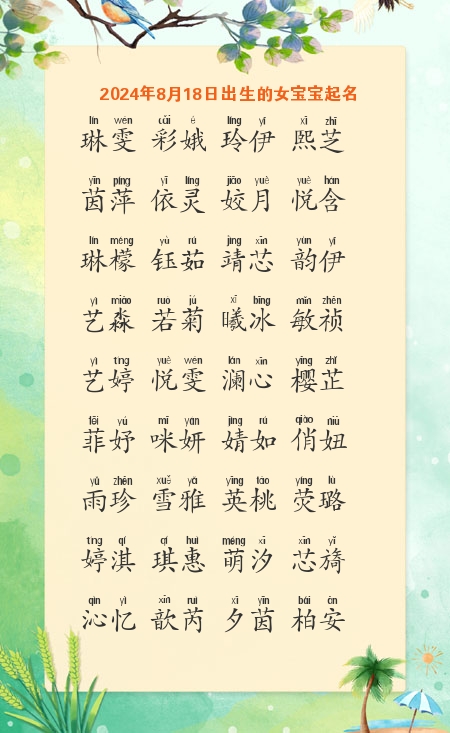 2024年8月18日出生的女宝宝起名
lín wén cǎi é líng yī xī zhī
琳雯 彩娥 玲伊 熙芝
yīn píng yī líng jiāo yuè yuè hán
茵萍 依灵 姣月 悦含
lín méng yù rú jìng xīn yùn yī
琳檬 钰茹 靖芯 韵伊
yì miǎo ruò jú xī bīng mǐn zhēn
艺淼 若菊 曦冰 敏祯
yì tíng yuè wén lán xīn yīng zhǐ
艺婷 悦雯 澜心 樱芷
fēi yú mī yán jìng rú qiào niū
菲妤 咪妍 婧如 俏妞
yǔ zhēn xuě yǎ yīng táo yíng lù
雨珍 雪雅 英桃 荧璐
tíng qí qí huì méng xī xīn yǐ
婷淇 琪惠 萌汐 芯旖
qìn yì xīn ruì xī yīn bǎi ān
沁忆 歆芮 夕茵 柏安